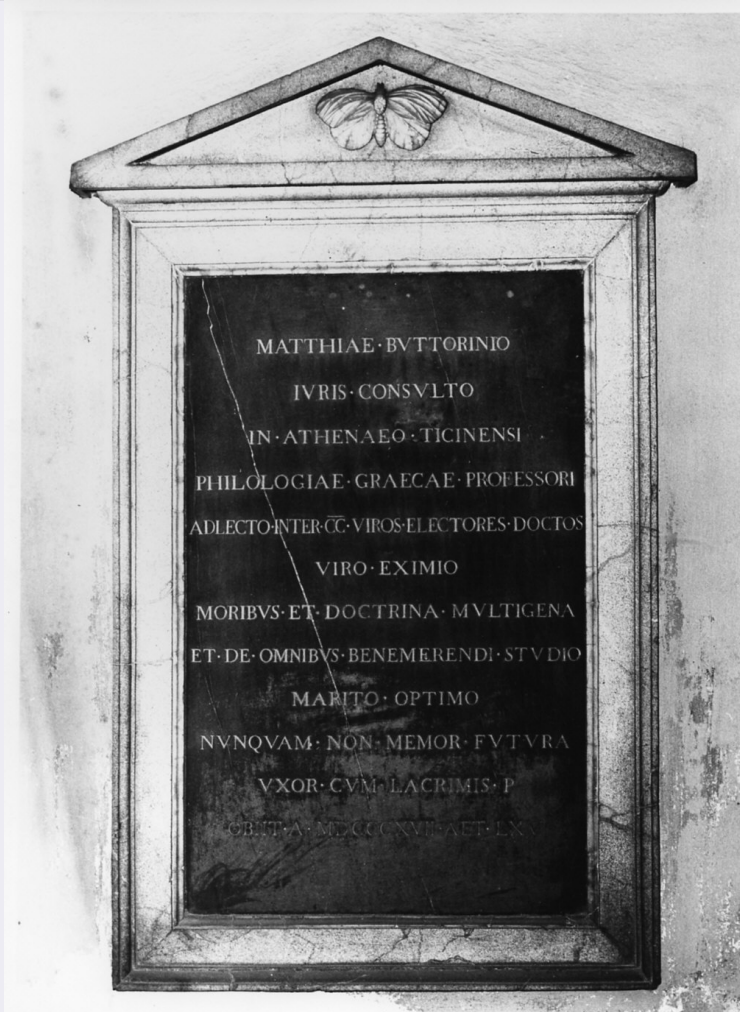 MATTHIAE·BVTTORINIO
IVRIS·CONSVLTO
IN·ATHENAEO·TICINENSI
PHILOLOGIAE·GRAECAE·PROFESSORI
ADLECTO·INTER·C̅C̅·VIROS·ELECTORES·DOCTOS
VIRO·EXIMIO
MORIBVS·ET·DOCTRINA·MVLTIGENA
ET·DE·OMNIBVS·BENEMERENDI·STVDIO
MARITO·OPTIMO
NVNQVAM·NON·MEMOR·FVTVRA
VXOR·CVM·LACRIMIS·P
OBIIT·A·MDCCCXVII·AET·